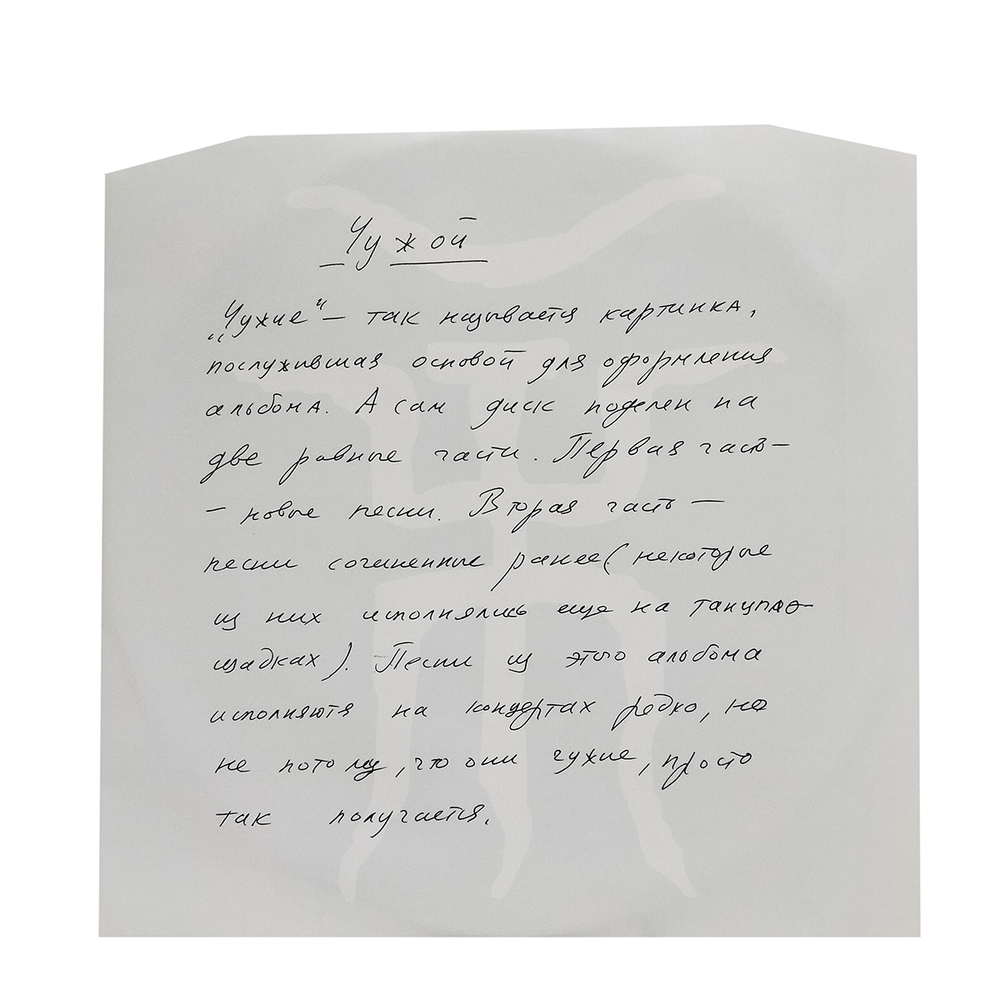 Чужой
„Чужие“ – так называется картинка,
послужившая основой для оформления
альбома. А сам диск поделен на
две равные части. Первая часть –
– новые песни. Вторая часть –
песни сочиненные ранее (некоторые
из них исполнялись еще на танцпло-
щадках). Песни из этого альбома
исполняются на концертах редко, но
не потому, что они чужие, просто
так получается.